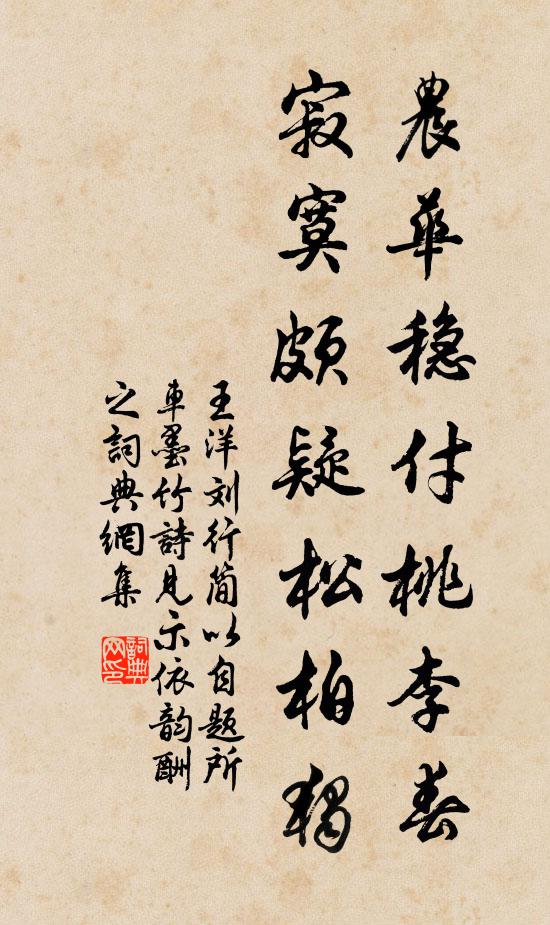 農華穩付桃李春
寂寞頗疑松柏獨
王洋刘行简以自题所
車墨竹詩見示依韵酬
之詞典網集
詞典网印